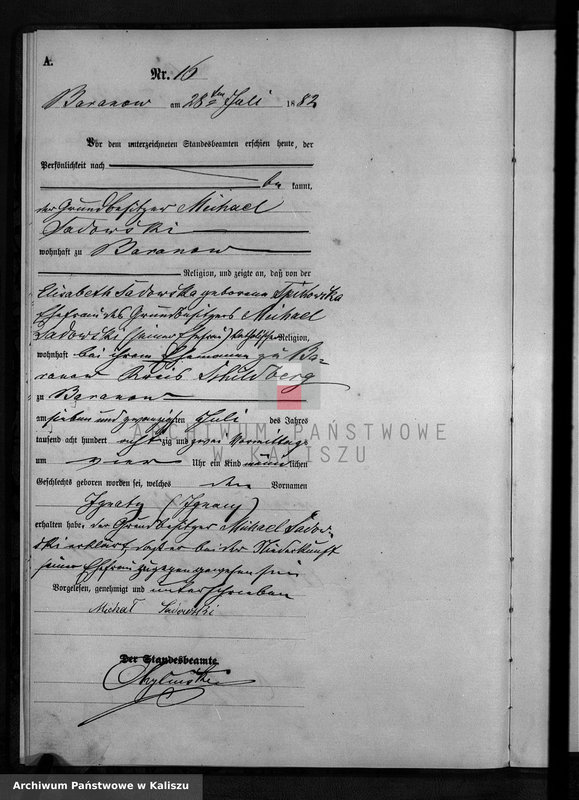 A.
Nr. 16
Baranow am 28ten Juli 1882
Vor dem unterzeichneten Standesbeamten erschien heute, der
Persönlichkeit nach
be kannt,
der Grundbesitzer Michael
Sadowski
wohnhaft zu Baranow
Religion, und zeigte an, daß von der
Elisabeth Sadowska geborene
Ehefrau des Grundbesitzers Michael
Sadowski (seiner Ehefrau) katholischer Religion,
wohnhaft bei ihrem Ehemanne zu Ba-
ranow Kreis Schildberg
zu Baranow
am sieben und zwanzigsten Juli des Jahres
tausend acht hundert achtzig und zwei Vormittags
um vier Uhr ein Kind männlichen
Geschlechts geboren worden sei, welches den Vornamen
Ignatz (Ignacy)
erhalten habe, der Grundbesitzer Michael Sadow-
ski erklärt daß er bei der Niederkunft
seiner Ehefrau zugegen gewesen sei
Vorgelesen, genehmigt und unterschrieben
Michał Sadowski
Der Standesbeamte.
ARCHIWUM PAŃSTWOWE
W KALISZU
Archiwum Państwowe w Kaliszu